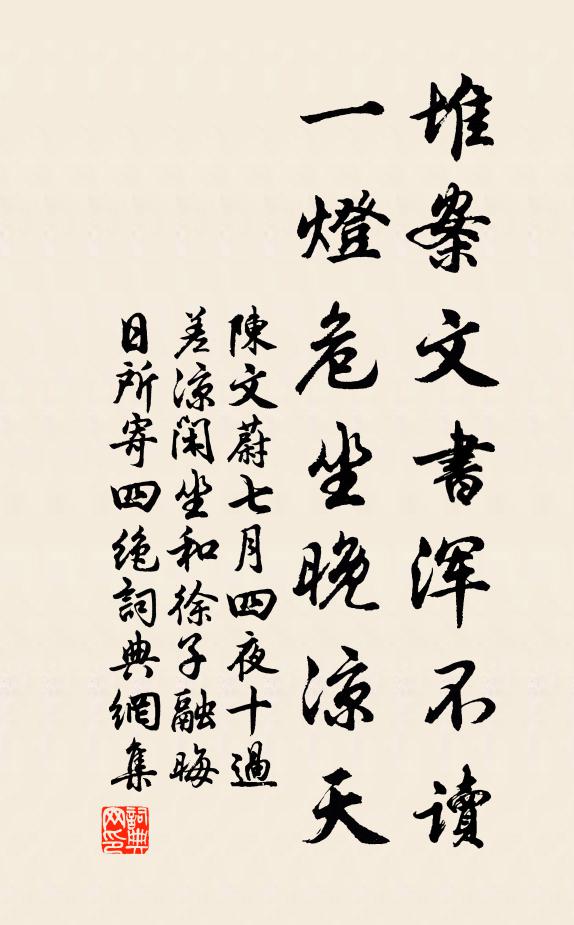 堆案文書浑不读
一燈危坐晚涼天
陳文蔚七月四夜十過
差涼閑坐和徐子融晦
日所寄四绝詞典網集
詞典
网印